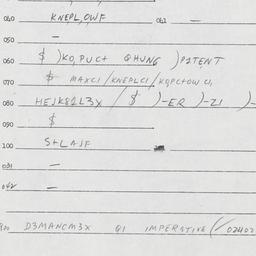 040 KNEPL,OWF 041 —
050 —
060 $ )KO,PUC+ QHUNG )PATENT
070 $ MAXCI/KNEPLCI/KQPC+OW CI,
080 HEJK81L3X / $ )-ER )-ZI )-
090 $
100 S+LAJF
031 —
042 —
D3MANCM3X Q1 IMPERATIVE (/ 02402